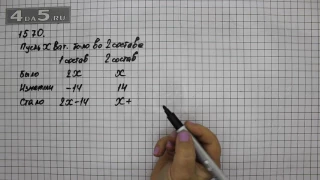 4DA5.RU
1570.
Пусть x ват. было во 2 состава
1 состав 2 состав
Было 2x x
Изменили -14 14
Стало 2x-14 x+